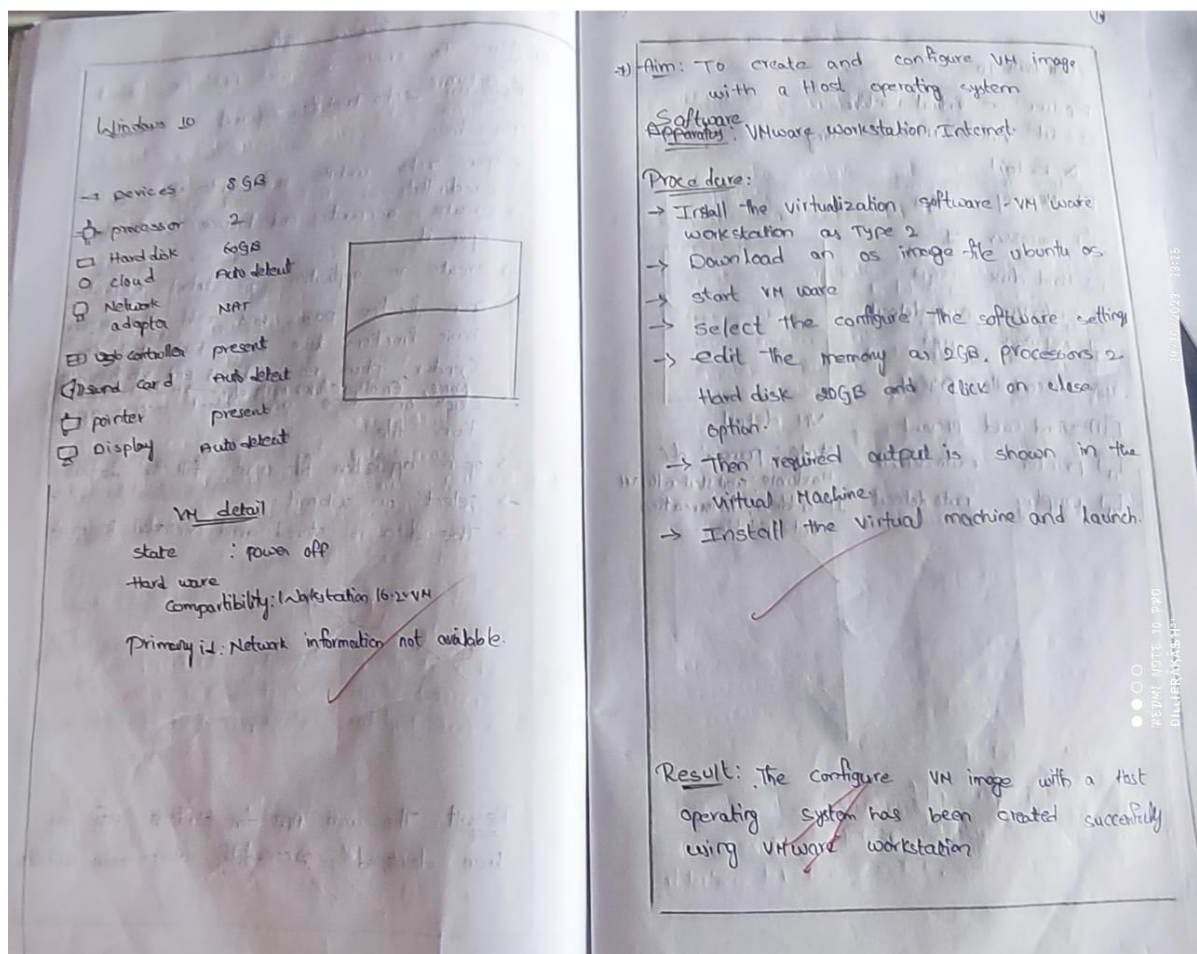 Windows 10
→ Devices 8GB
processor 2
Hard disk 60GB
cloud Auto detect
Network adapter NAT
Usb controller present
Sound card Auto detect
pointer present
Display Auto detect
VM detail
state : power off
Hard ware
Compartibility: Workstation 16.2 VM
Primary id: Network information not available.
Aim: To create and configure VM image
with a Host operating system
Software
Apparatus: VMware, workstation, Internet.
Procedure:
→ Install the virtualization software - VM ware
workstation as Type 2
→ Download an os image file ubuntu os
→ start VM ware
→ Select the configure the software settings
→ edit the memory as 2GB. processors 2
Hard disk 20GB and click on close
option.
→ Then required output is shown in the
Virtual Machine
→ Install the virtual machine and launch.
Result: The configure VM image with a Host
operating system has been created succenfully
using VMware workstation
REDMI NOTE 10 PRO